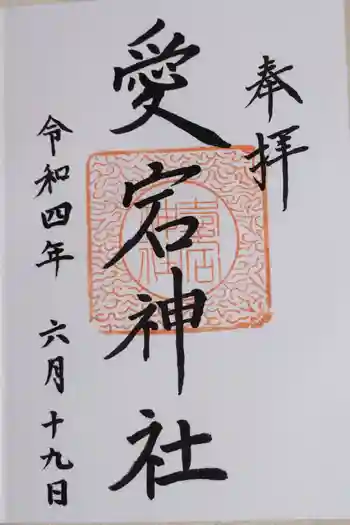 奉拝
愛宕神社
令和四年 六月十九日